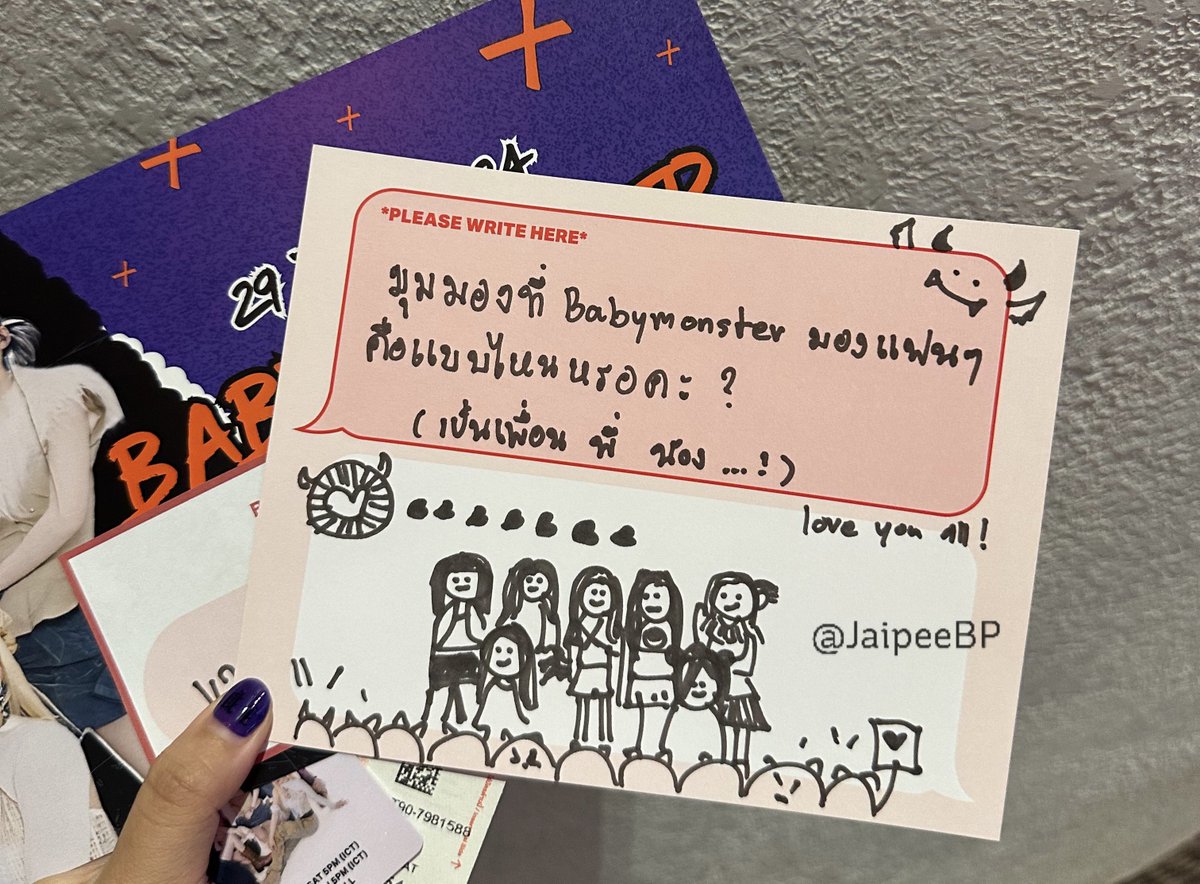 29
BAB
*PLEASE WRITE HERE*
มุมมองที่ Babymonster มองแฟนๆ
คือแบบไหนหรอคะ ?
( เป็นเพื่อน พี่ น้อง ...! )
love you all !
@JaipeeBP
T90-7981588
SAT 5PM (ICT)
5PM (ICT)